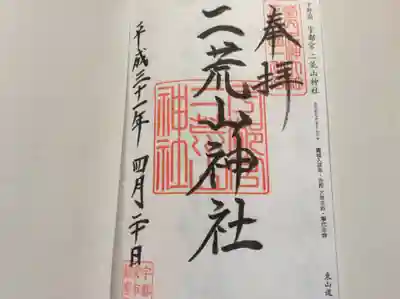 下野国 宇都宮 二荒山神社
東山道
奉拝
二荒山神社
平成三十一年 四月二十日